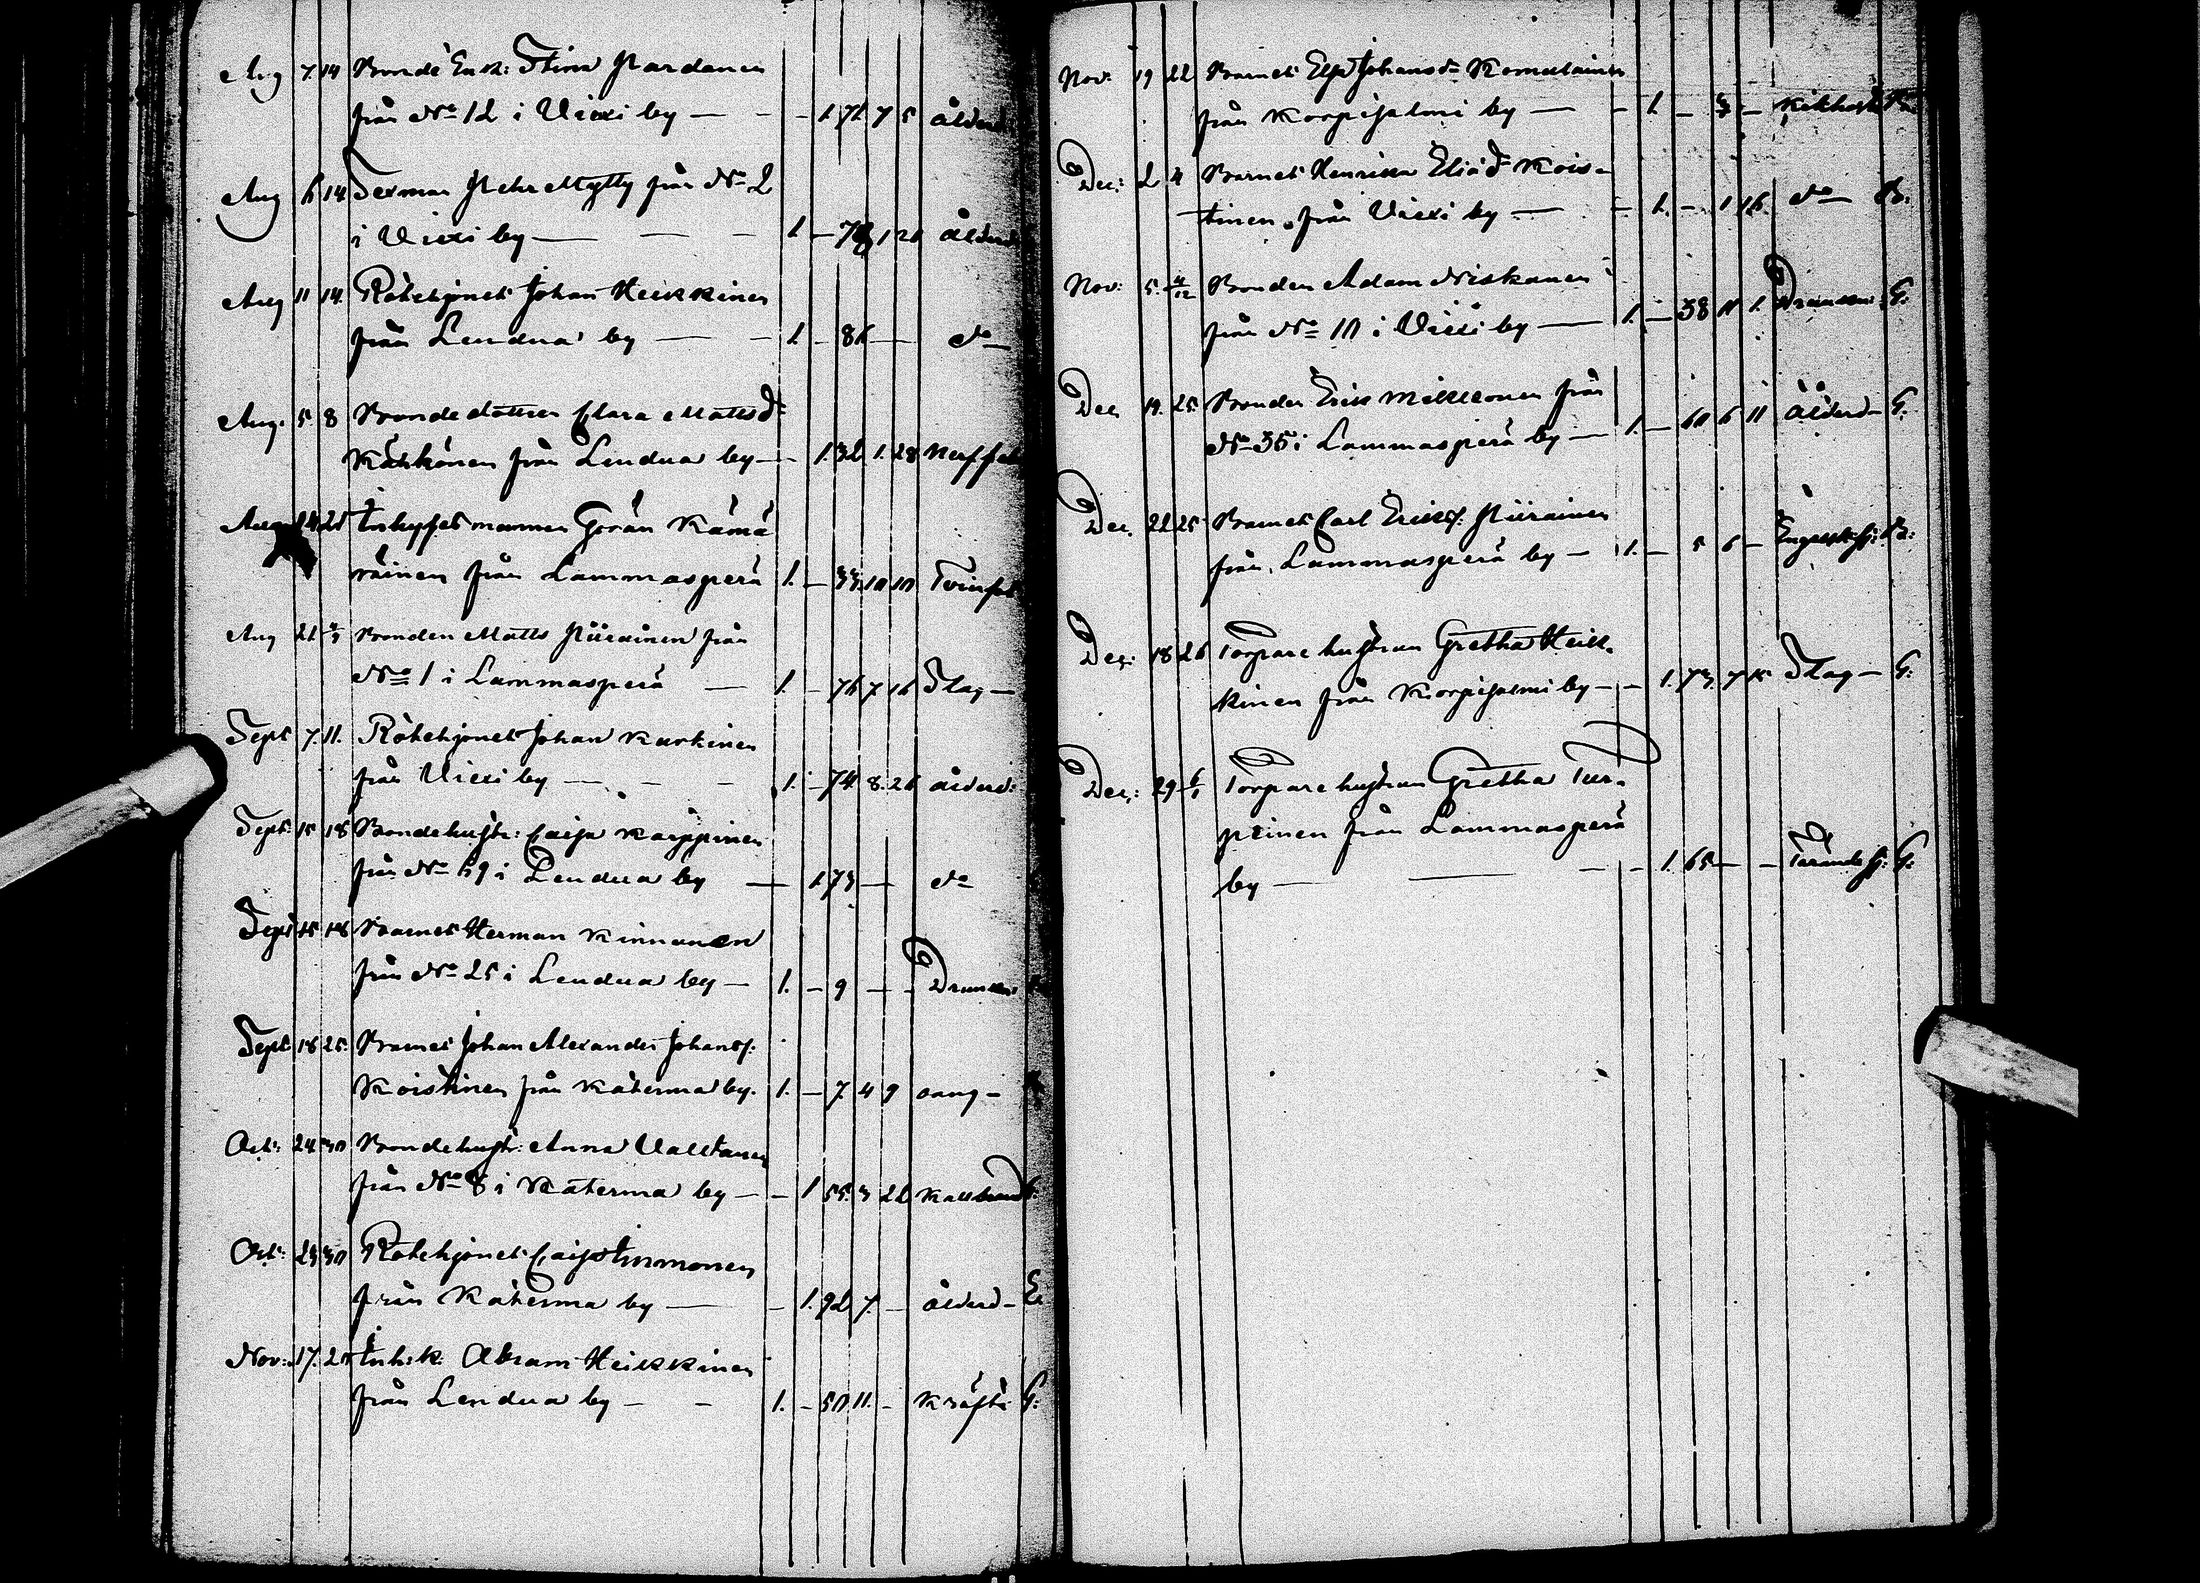 Aug 7. 14 Bonde Enk: Stina Pardanen
från No 12 i Viexi by — - - 1. 71 7 5 ålderd
Aug 6 14 Sexman Pehr Mylly från No 2
i Viexi by — — - 1 — 78 1 21 ålderd
Aug 11 14. Rotehjonet Johan Heikkinen
från Lendua by — - 1. - 86 — do
Aug. 5 8 Bondedottren Clara Mattsdr
Kähkönen från Lendua by — - 1. 32 1. 28
Aug 14 21 Inhysesmannen Göran Kämä
räinen från Lammasperä 1. — 33. 10 10
Aug 21 4/9 Bonden Matts Piirainen från
No 1 i Lammasperä — 1. - 76 7 16 Slag —
Sept 7. 11. Rotehjonet Johan Kurkinen
från Viexi by — - - 1. - 74. 8. 26 ålderd:
Sept: 15 18 Bondehustr: Caisa Karppinen
från No 69 i Lendua by — 1. 73 — do
Sept 15 18 Barnet Herman Kinnunen
från No 25 i Lendua by — 1. - 9 — - Drunkn:
Sept 18 25. Barnet Johan Alexander Johanss:
Koistinen från Katerma by. 1. - 7. 4 9 oang —
Oct: 24 30 Bondehustr: Anna Valltanen
från No 8 i Katerma by — - 1 55. 3 22 Kallbrand G:
Oct: 23 30 Rotehjonet Caisa Immonen
från Katerma by — - 1. 92 7. - ålderd —
Nov: 17. 21 Inh:k: Abram Heikkinen
från Lendua by — - 1. - 50 11. - G:
Nov: 19 22 Barnet Elsa Johansdr Komulainen
från Korpisalmi by — - 1. - 3/4 - Kikhosta
Dec: 2 4 Barnet Henrica Eliædr Kois-
tinen från Viexi by — - 1. - 1 16. do B.
Nov: 5. 4/12 Bonden Adam Niskanen
från No 10 i Viexi by — 1. — 38 11 1. G:
Dec 19. 25. Bonden Erik Mikkonen från
No 35 i Lammasperä by — 1. — 60 6 11 Ålderd — G.
Dec. 22 25 Barnet Carl Erikss: Piirainen
från Lammasperä by — 1. — 5 6 —
Dec: 18 26 Torparehustrun Gretha Heik-
kinen från Korpisalmi by — - 1. 73 7 15 Slag — G:
Dec: 29 6/1 Torparehustrun Gretha Tur-
peinen från Lammasperä
by — — - - 1. 65 — - G: